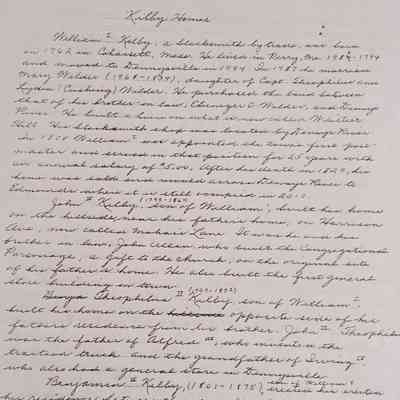 Kilby Homes
William I Kilby, a blacksmith by trade, was born
in 1762 in Cohasset, Mass. He lived in Perry, Me. 1784-1794
and moved to Dennysville in 1794. In 1787 he married
Mary Wilder (1768-), daughter of Capt. Theophilus and
Lydia (Cushing) Wilder. He purchased the land between
that of his brother in law, Ebenezer C. Wilder, and Dennys
River. He built a home on what is now called
Hill. His blacksmith shop was located by Dennys River
in 1810. William was appointed the towns first post
master and served in that position for 25 years with
an annual salary of After his death in 1829, his
home was sold and moved across Dennys River to
Edmunds where it is still occupied in 2010.
John II Kilby, son of William I, built his home
on the hillside near his fathers home, on Harrison
Ave, now called Mahar's Lane. It was he and his
brother in law, John Allan who built the Congregational
Parsonage, a gift to the church, on the original site
of his father's home. He also built the first general
store building in town.
Theophilus II Kilby, son of William I,
built his home on the opposite side of his
fathers residence from his brother John II. Theophilus
was the father of Alfred III, who invented the
tractor truck and the grandfather of Irving
who also had a general store in Dennysville
Benjamin II Kilby, (1801-1875), son of William I erected